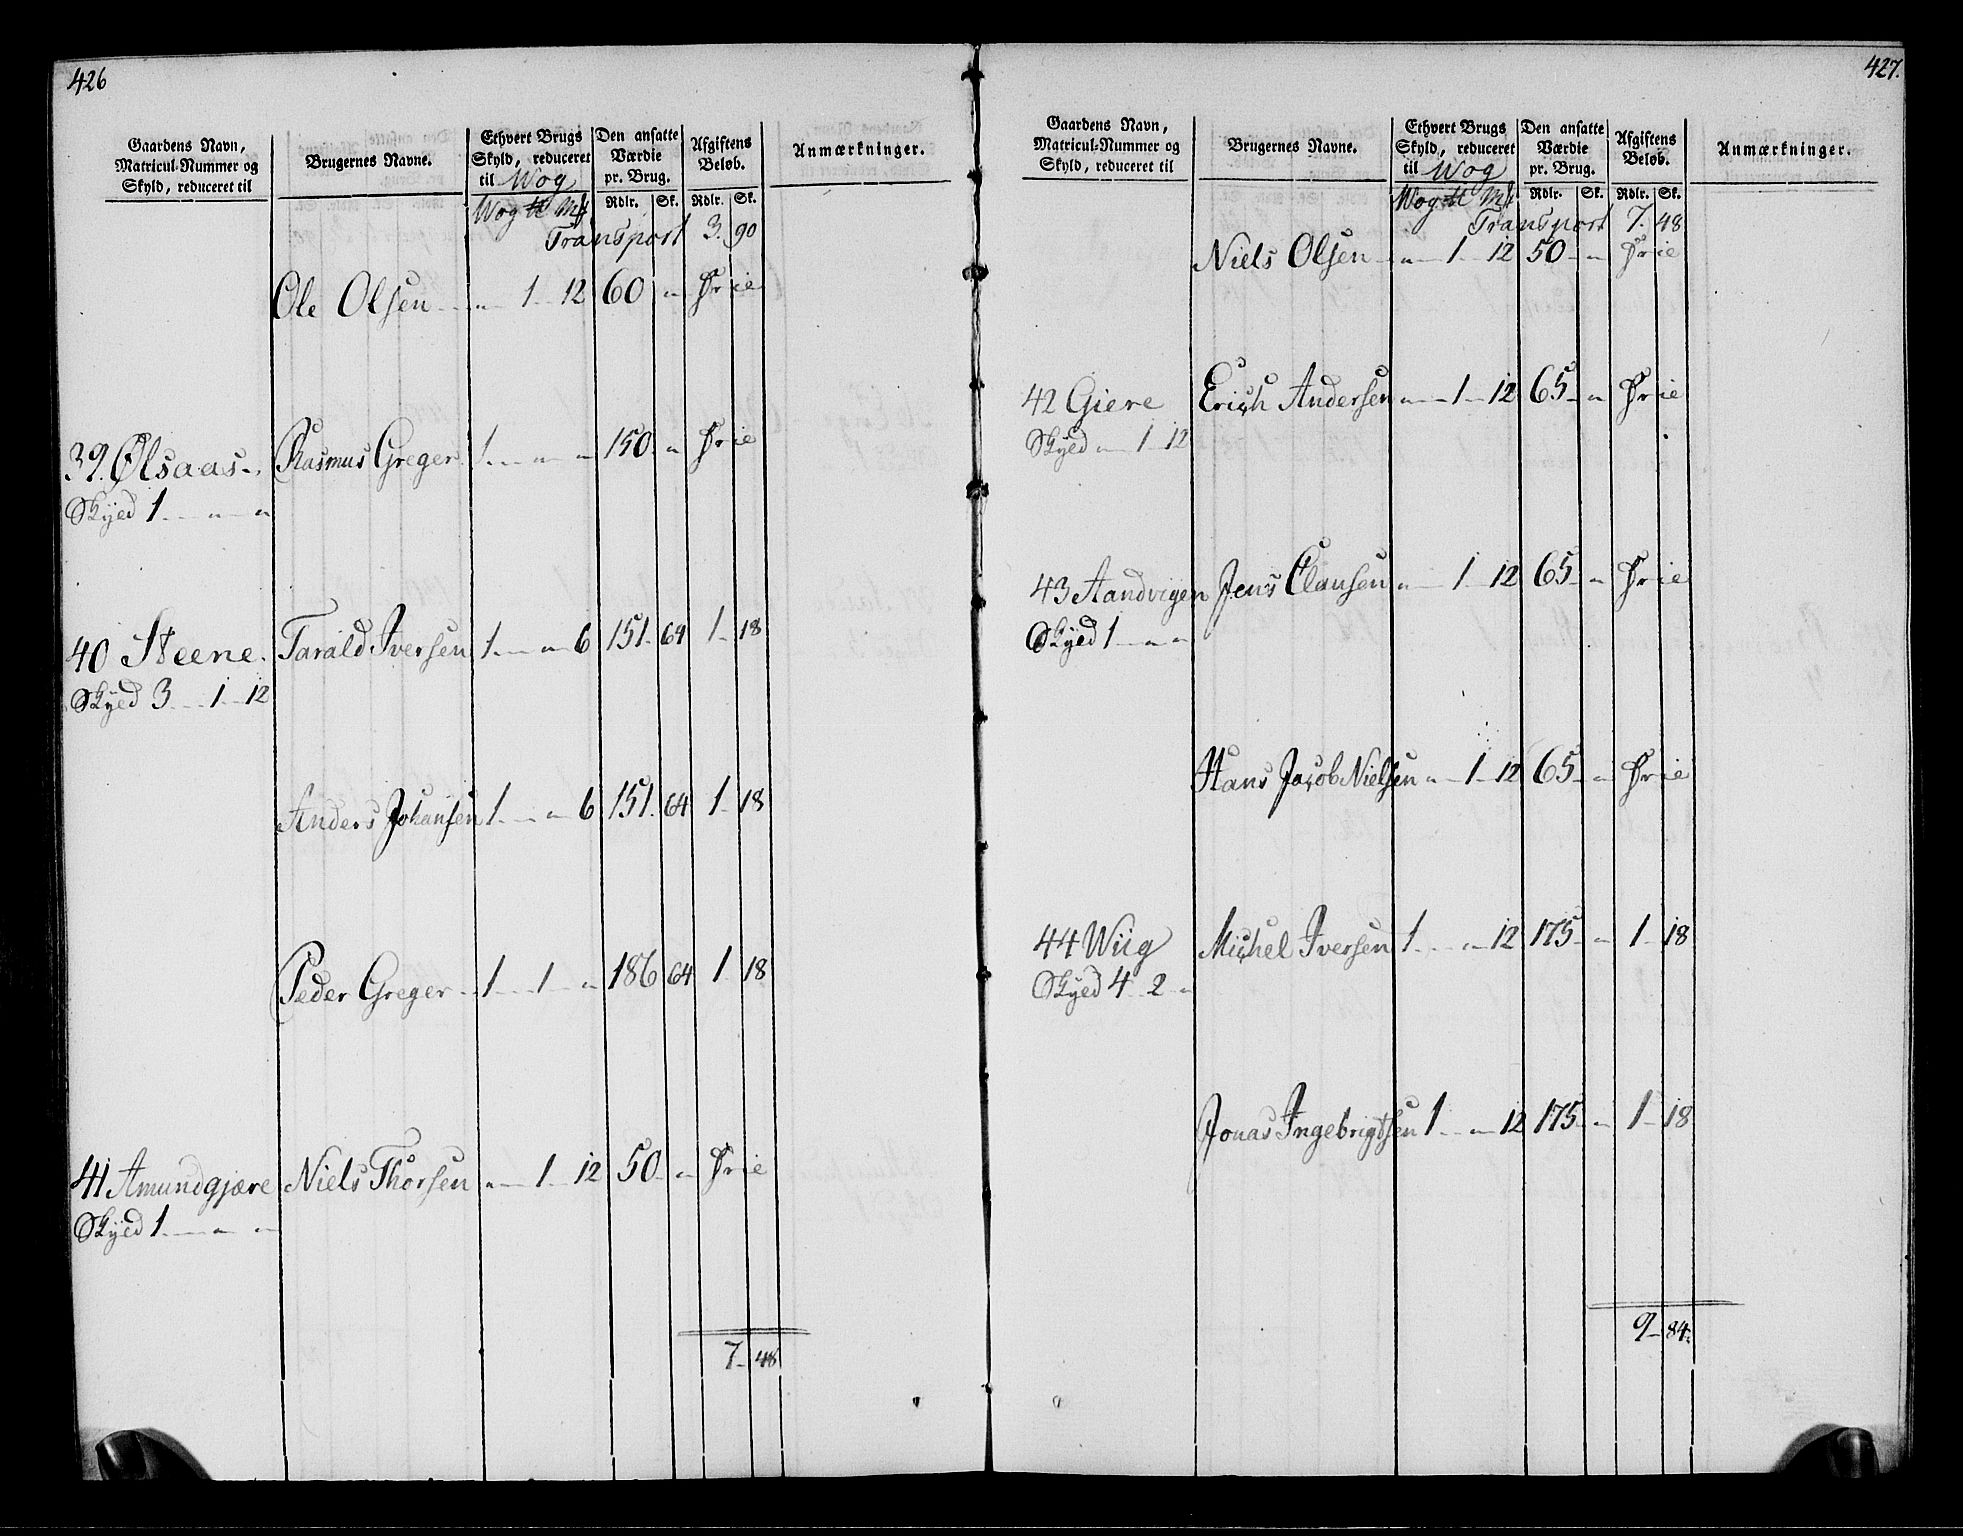 426
Gaardens Navn,
Matricul-Nummer og
Skyld, reduceret til
Brugernes Navne.
Ethvert Brugs
Skyld, reduceret
til Wog
Den ansatte
Værdie
pr. Brug.
Afgiftens
Beløb.
Anmærkninger.
Wog ℔ Mk
Rdlr. Sk. Rdlr. Sk.
Transport 3. 90
Ole Olsen " 1 12 60 " Frie
39. Ølsaas Rasmus Greger 1 " " 150 " Frie
Skyed 1 " "
40 Steene Tarald Iversen 1 " 6 151 64 1 18
Skyed 3 1 12
Anders Johansen 1 " 6 151 64 1 18
Peder Greger 1 1 " 186 64 1 18
41 Amundgjære Niels Thorsen " 1 12 50 " Frie
Skyed 1 " "
7 48
427.
Gaardens Navn,
Matricul-Nummer og
Skyld, reduceret til
Brugernes Navne.
Ethvert Brugs
Skyld, reduceret
til Wog
Den ansatte
Værdie
pr. Brug.
Afgiftens
Beløb.
Anmærkninger.
Wog ℔ Mk
Rdlr. Sk. Rdlr. Sk.
Transport 7. 48
Niels Olsen " 1 12 50 " Frie
42 Giere Erich Andersen " 1 12 65 " Frie
Skyed " 1 12
43 Aandvigen Jens Clausen " 1 12 65 " Frie
Skyed 1 " "
Hans Jacob Nielsen " 1 12 65 " Frie
44 Wiig Michel Iversen 1 " 12 175 " 1 18
Skyed 4 2 "
Jonas Ingebrigtsen 1 " 12 175 " 1 18
9 84